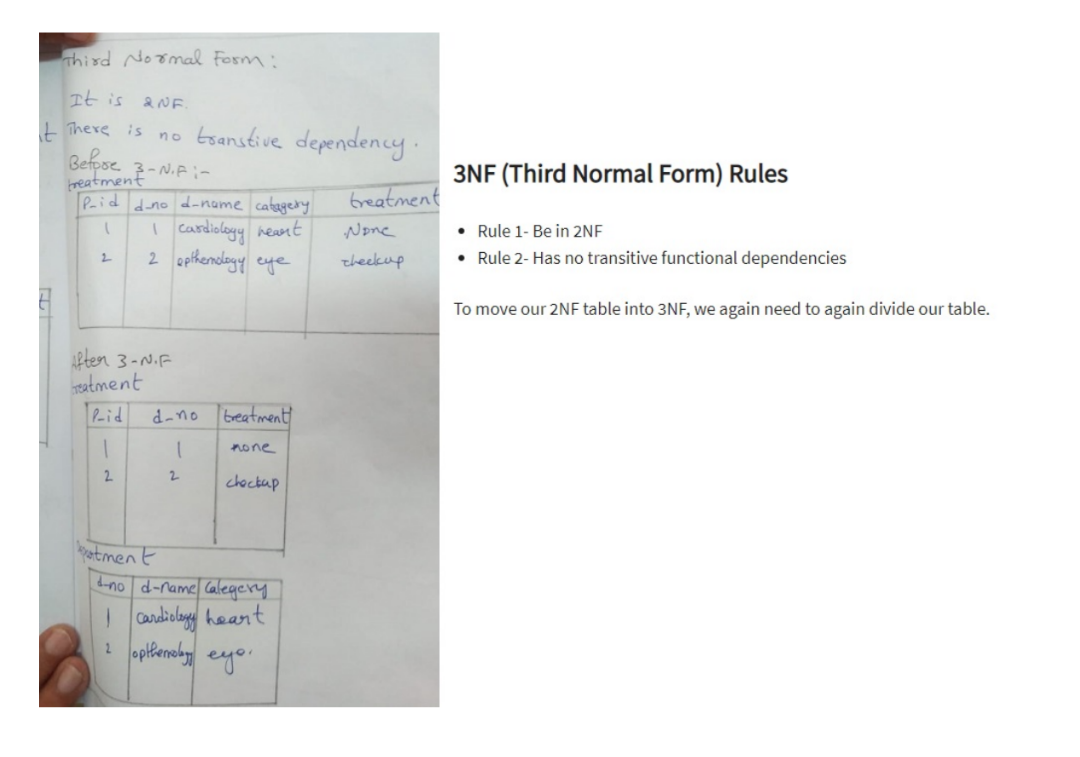 Third Normal Form:
It is 2NF.
There is no transtive dependency.
Before 3-N.F :-
treatment
P-id d-no d-name catagery treatment
1 1 cardiology heart None
2 2 opthemology eye checkup
After 3-N.F
treatment
P-id d-no treatment
1 1 none
2 2 checkup
Department
d-no d-name categery
1 cardiology heart
2 opthemology eye.
3NF (Third Normal Form) Rules
• Rule 1- Be in 2NF
• Rule 2- Has no transitive functional dependencies
To move our 2NF table into 3NF, we again need to again divide our table.